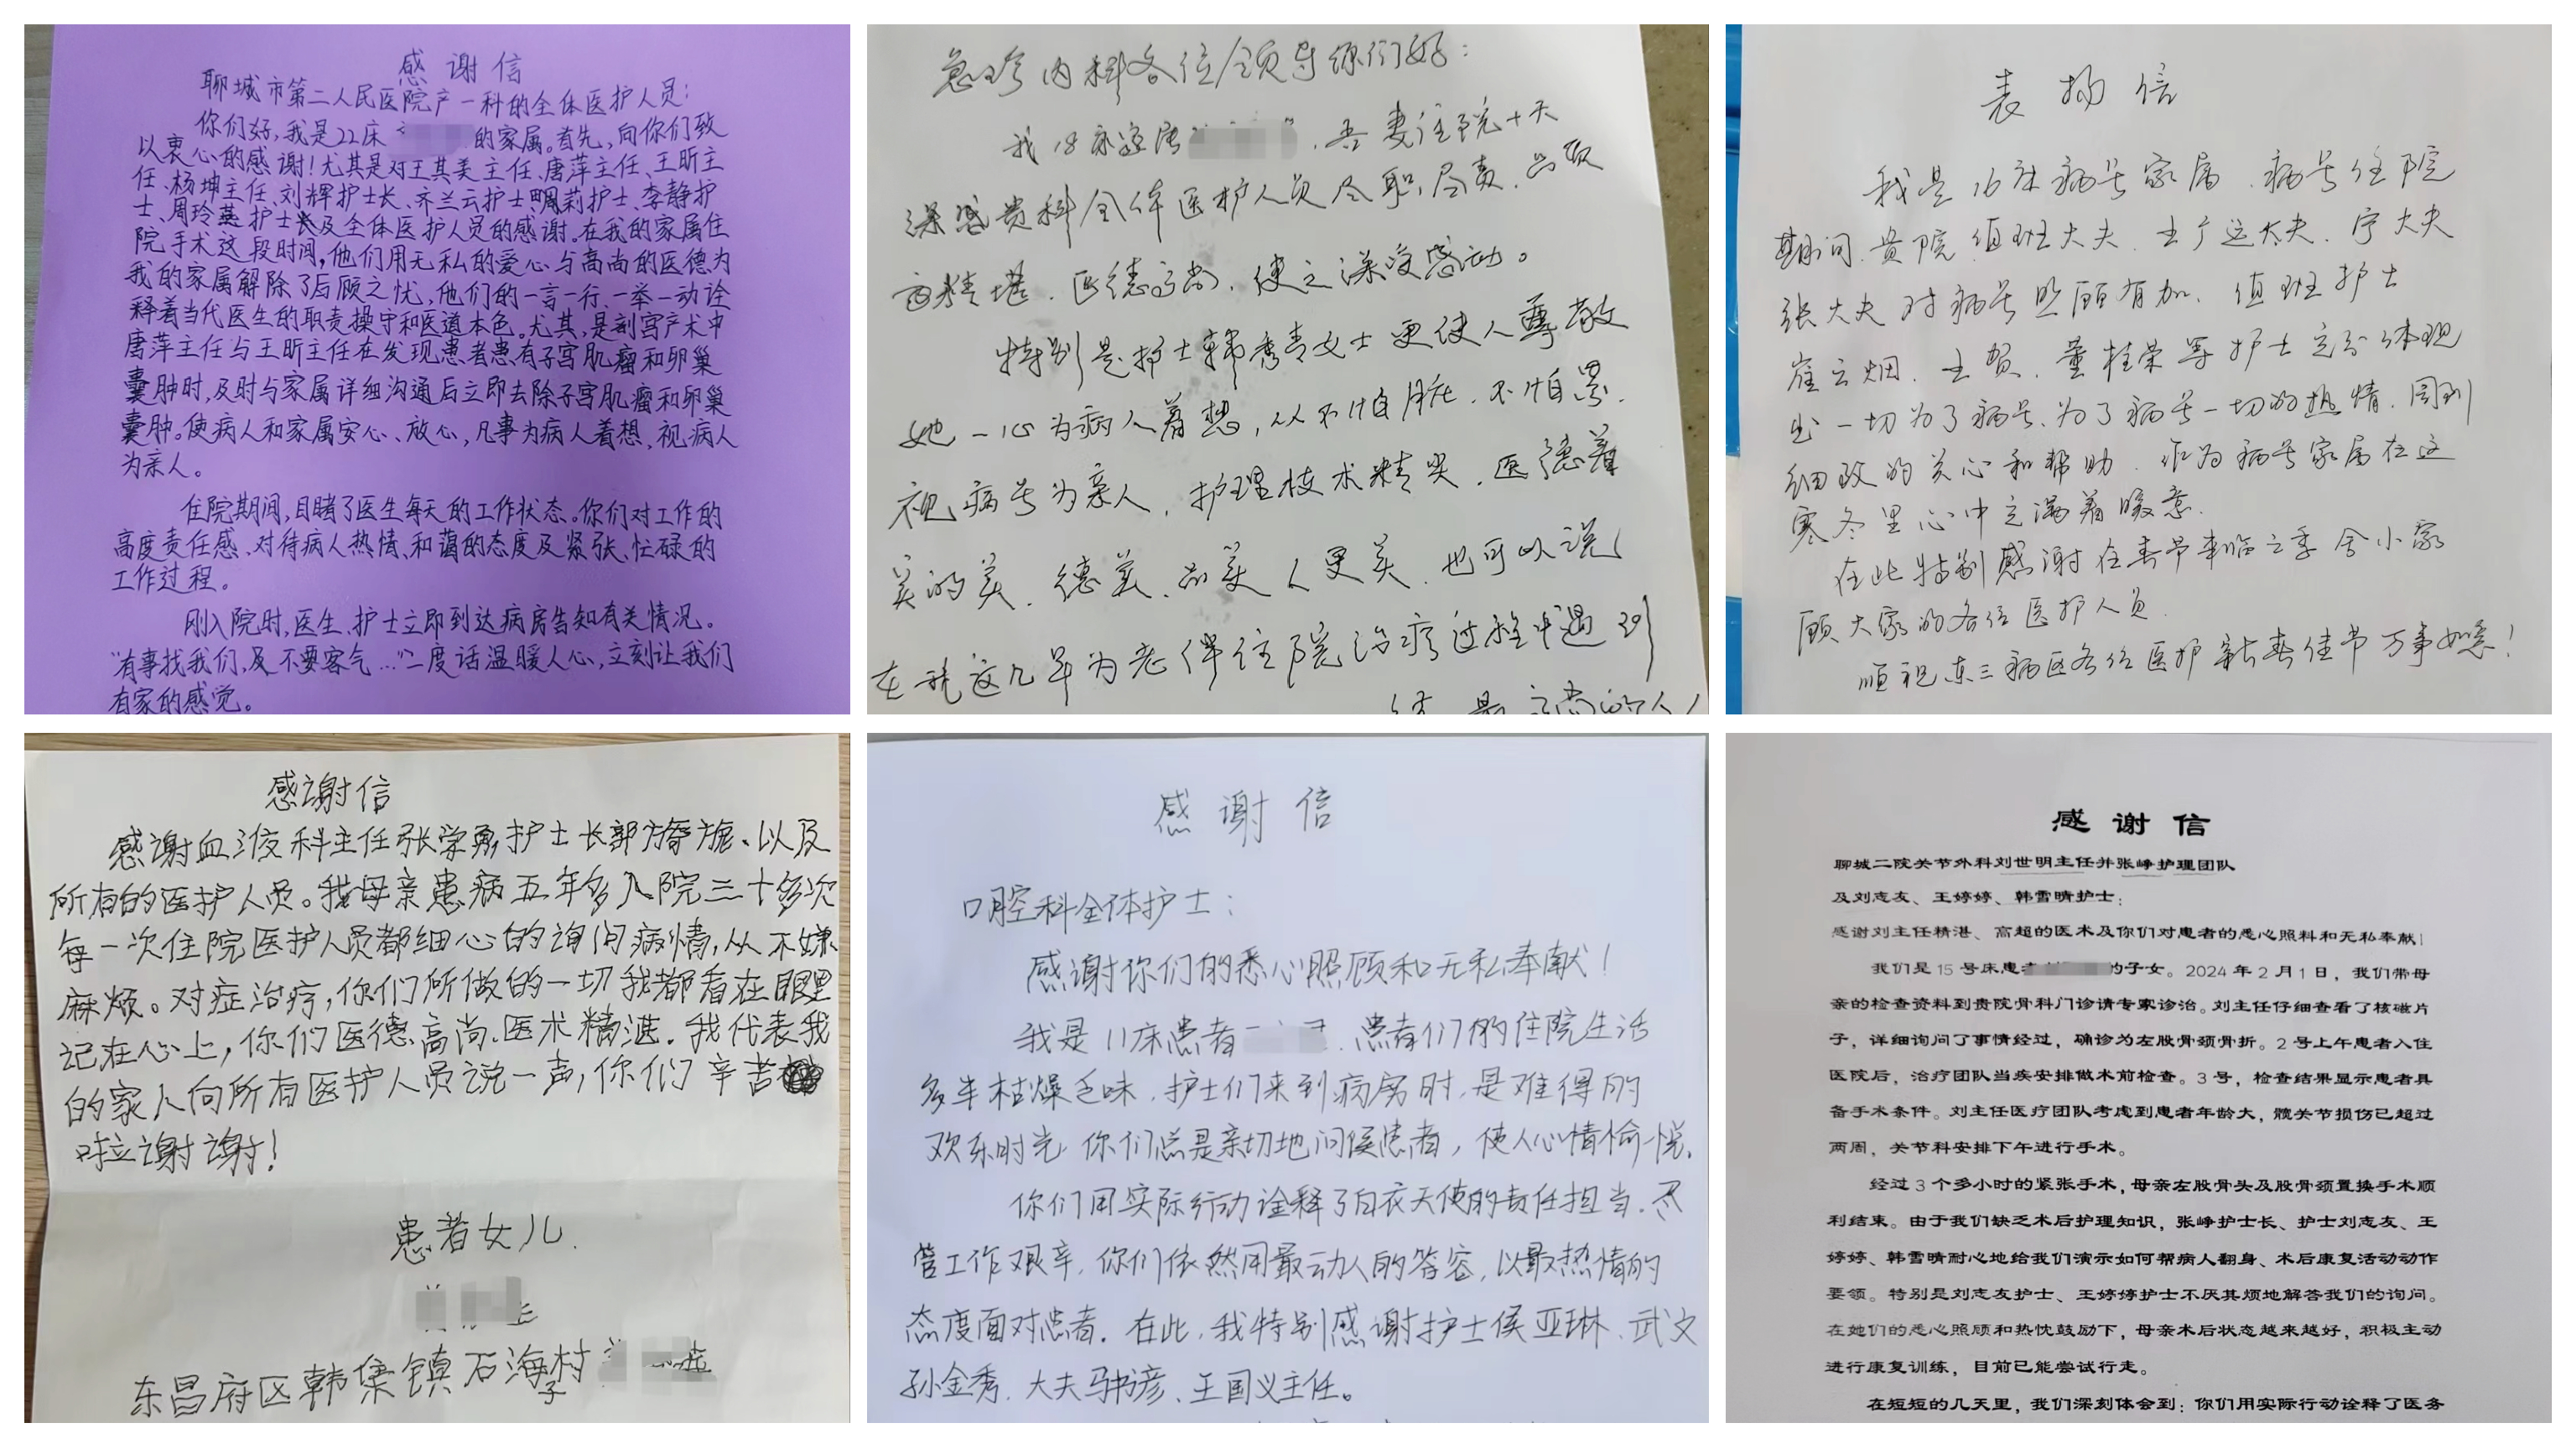 感谢信
聊城市第二人民医院产一科的全体医护人员:
你们好,我是22床 的家属。首先,向你们致
以衷心的感谢!尤其是对王其美主任、唐萍主任、王昕主
任、杨坤主任、刘辉护士长、齐兰云护士 莉护士、李静护
士、周玲燕护士长及全体医护人员的感谢。在我的家属住
院手术这段时间,他们用无私的爱心与高尚的医德为
我的家属解除了后顾之忧,他们的一言一行、一举一动诠
释着当代医生的职责操守和医道本色。尤其,是剖宫产术中
唐萍主任与王昕主任在发现患者患有子宫肌瘤和卵巢
囊肿时,及时与家属详细沟通后立即去除子宫肌瘤和卵巢
囊肿。使病人和家属安心、放心,凡事为病人着想,视病人
为亲人。
住院期间,目睹了医生每天的工作状态。你们对工作的
高度责任感、对待病人热情、和蔼的态度及紧张、忙碌的
工作过程。
刚入院时,医生、护士立即到达病房告知有关情况。
“有事找我们,及不要客气…”二度话温暖人心,立刻让我们
有家的感觉。
急诊内科各位领导你们好:
我18床 ,吾妻住院十天
深感贵科全体医护人员尽职,尽责,
,医德高尚,使之深受感动。
特别是护士韩秀青女士更使人尊敬
她一心为病人着想,从不怕脏,不怕累,
视病号为亲人,护理技术精尖,医德着
美的美,德美,品美人更美,也可以说
在我这几年为老伴住院治疗过程中遇到
最高尚的人
表扬信
我是16床病号家属,病号住院
期间,贵院值班大夫,王广运大夫,宁大夫
张大夫对病号照顾有加,值班护士
崔云烟,王贺,董桂荣等护士充分体现
出一切为了病号,为了病号一切的热情,周到
细致的关心和帮助,作为病号家属在这
寒冬里心中充满着暖意.
在此特别感谢在春节来临之季舍小家
顾大家的各位医护人员.
顺祝东三病区各位医护新春佳节万事如意!
感谢信
感谢血液科主任张学勇,护士长郭 旎、以及
所有的医护人员。我母亲患病五年多入院三十多次
每一次住院医护人员都细心的询问病情,从不嫌
麻烦。对症治疗,你们所做的一切我都看在眼里
记在心上,你们医德高尚.医术精湛.我代表我
的家人向所有医护人员说一声,你们辛苦
啦谢谢!
患者女儿.
东昌府区韩集镇石海村子
感谢信
口腔科全体护士:
感谢你们的悉心照顾和无私奉献!
我是11床患者 ,患者们的住院生活
多半枯燥乏味,护士们来到病房时,是难得的
欢乐时光 你们总是亲切地问候患者,使人心情愉悦.
你们用实际行动诠释了白衣天使的责任担当.尽
管工作艰辛,你们依然用最动人的笑容,以最热情的
态度面对患者.在此,我特别感谢护士侯亚琳、武文
孙金秀.大夫马书彦、王国义主任。
感谢信
聊城二院关节外科刘世明主任并张峥护理团队
及刘志友、王婷婷、韩雪晴护士:
感谢刘主任精湛、高超的医术及你们对患者的悉心照料和无私奉献!
我们是15号床患者 的子女。2024年2月1日,我们带母
亲的检查资料到贵院骨科门诊请专家诊治。刘主任仔细查看了核磁片
子,详细询问了事情经过,确诊为左股骨颈骨折。2号上午患者入住
医院后,治疗团队当疾安排做术前检查。3号,检查结果显示患者具
备手术条件。刘主任医疗团队考虑到患者年龄大,髋关节损伤已超过
两周,关节科安排下午进行手术。
经过3个多小时的紧张手术,母亲左股骨头及股骨颈置换手术顺
利结束。由于我们缺乏术后护理知识,张峥护士长、护士刘志友、王
婷婷、韩雪晴耐心地给我们演示如何帮病人翻身、术后康复活动动作
要领。特别是刘志友护士、王婷婷护士不厌其烦地解答我们的询问。
在她们的悉心照顾和热忱鼓励下,母亲术后状态越来越好,积极主动
进行康复训练,目前已能尝试行走。
在短短的几天里,我们深刻体会到:你们用实际行动诠释了医务